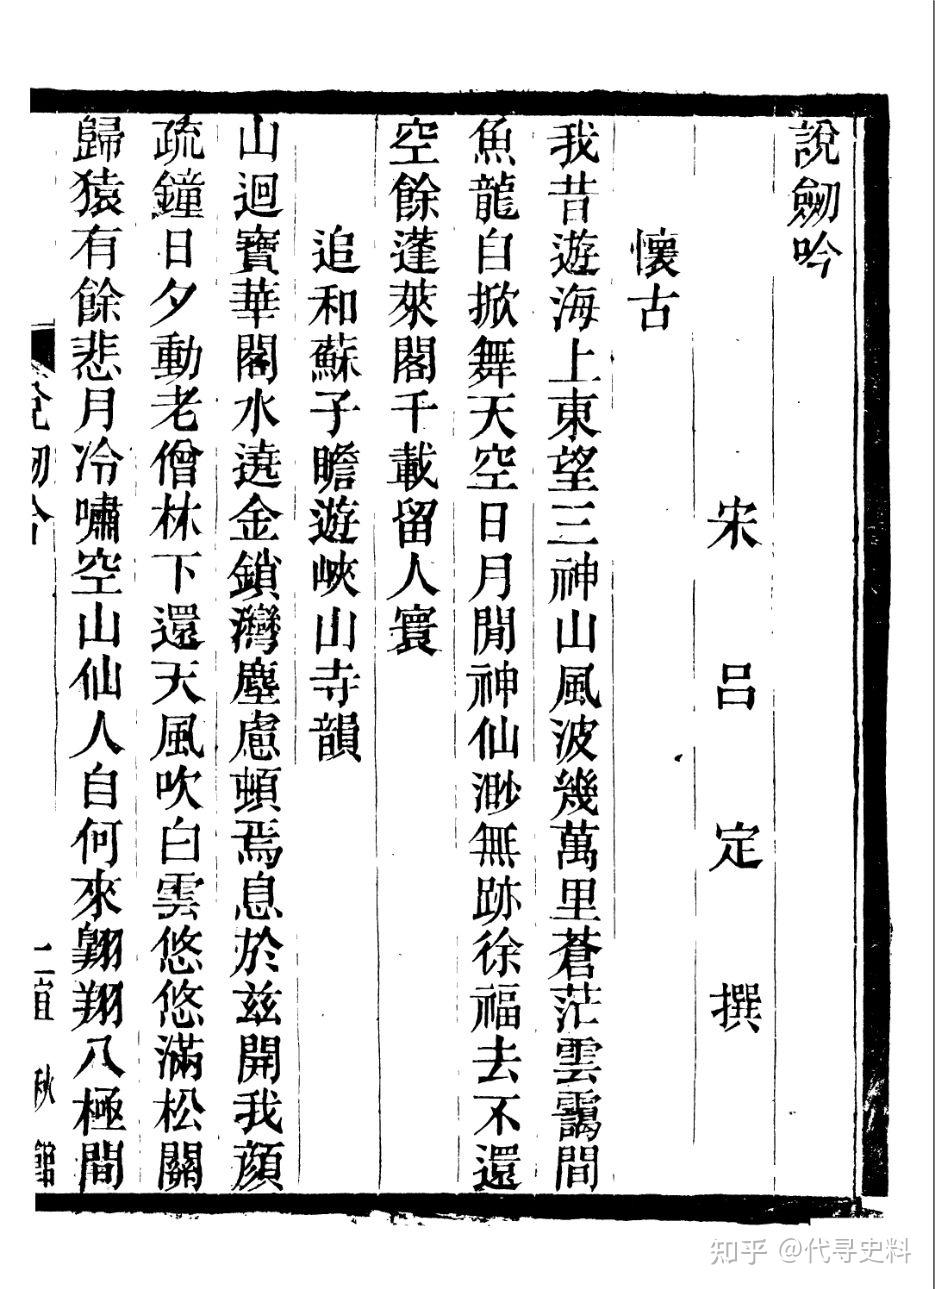 說劒吟
宋呂定撰
懷古
我昔遊海上東望三神山風波幾萬里蒼茫雲靄間
魚龍自掀舞天空日月閒神仙渺無跡徐福去不還
空餘蓬萊閣千載留人寰
追和蘇子瞻遊峽山寺韻
山迴寶華閣水遶金鎖灣塵慮頓焉息於兹開我顔
疏鐘日夕動老僧林下還天風吹白雲悠悠滿松關
歸猿有餘悲月冷嘯空山仙人自何來翺翔八極間
知乎 @代寻史料